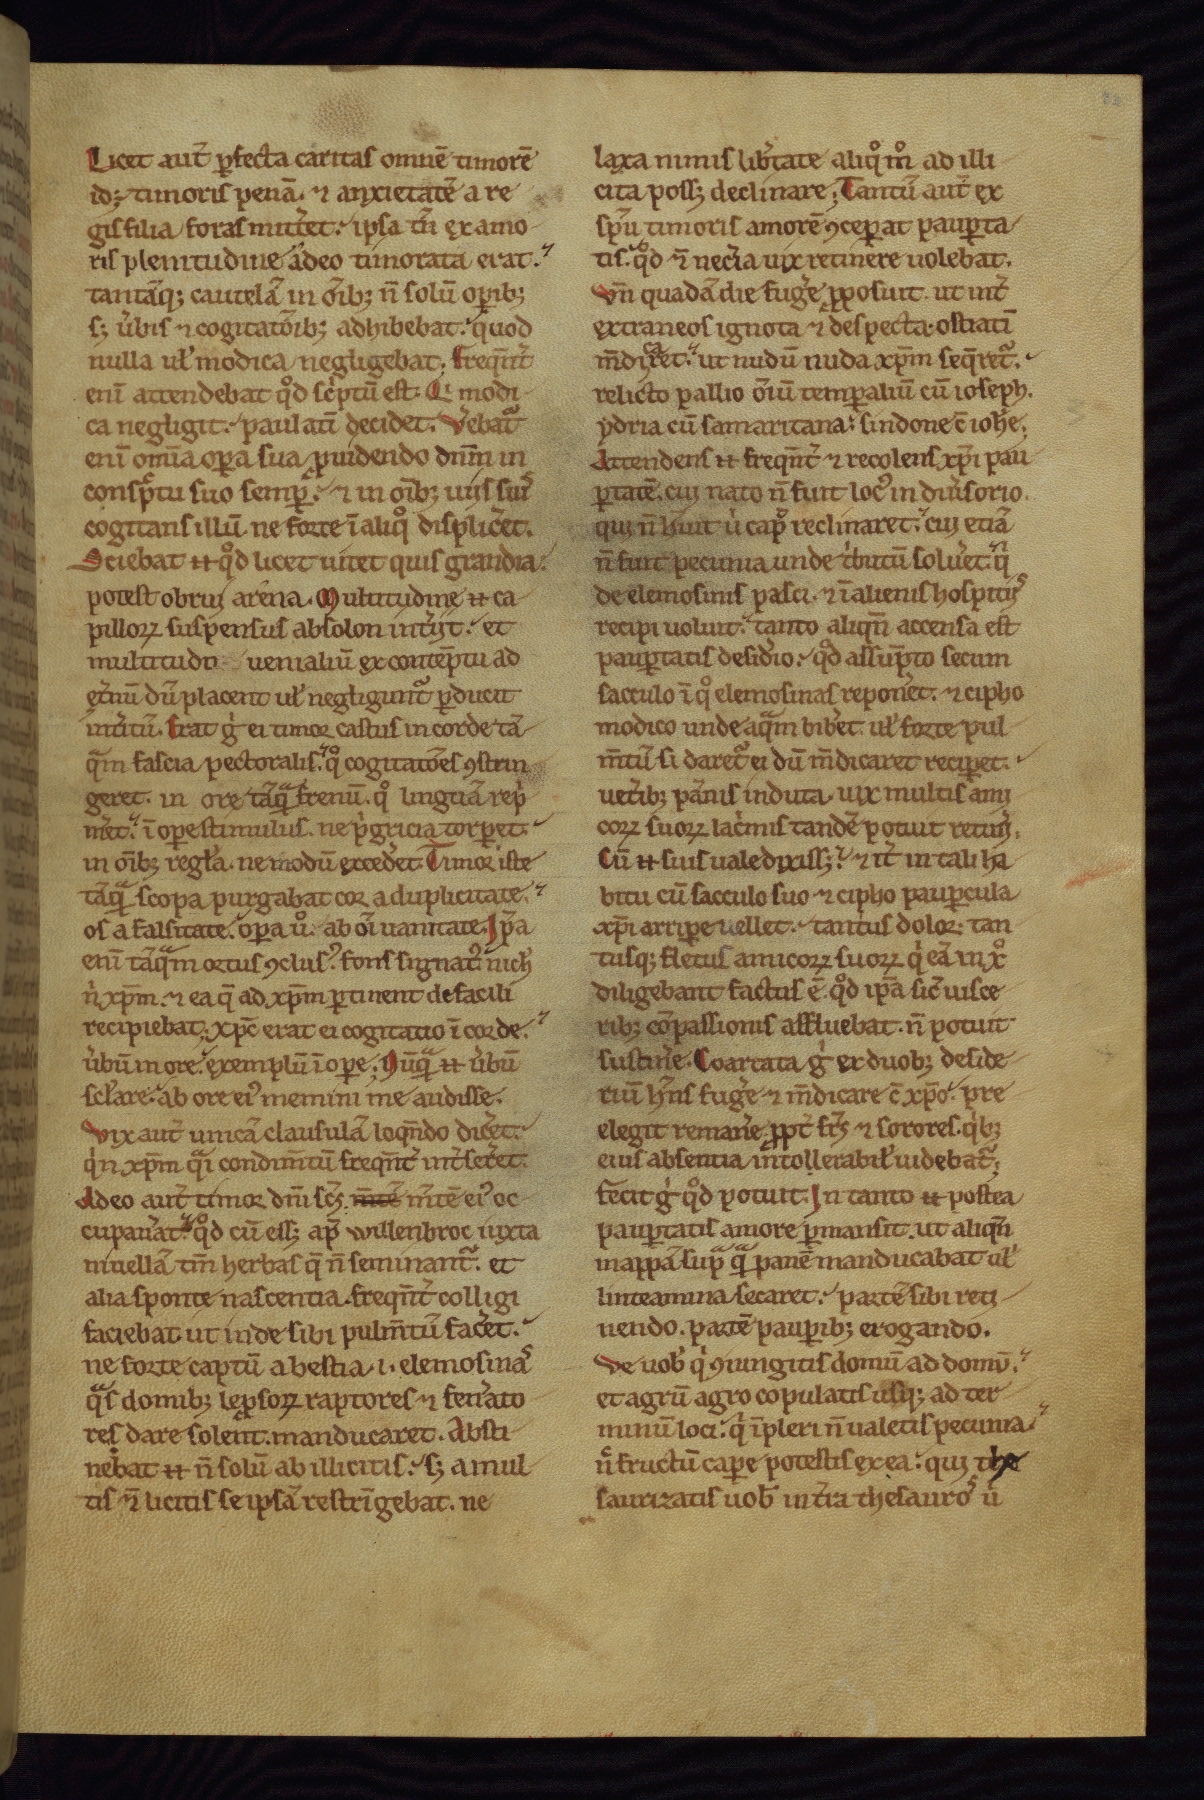 Licet aut̄ ꝑfecta caritas omnē timorē
id; timoris penā. ⁊ anxietatē a re
gis filia foras mitt̄et. ipsa tn̄ ex amo
ris plenitudine adeo timorata erat.
tantāq; cautelā in oīb; n̄ solū oꝑib;
s; ūbis ⁊ cogitatōib; adhibebat. quod
nulla uł modica negligebat. Freqn̄t̄
eni attendebat qͦd sc̄ptū est. Qi modi
ca negligit. paulatī decidet. Verebat̄
enī omīa oꝑa sua ꝓuidendo dnm̄ in
conspc̄tu suo semꝑ. ⁊ in oīb; uiis suis
cogitans illū. ne forte ī aliqͦ displic̄et.
Sciebat ⁊t qͦd licet uitet quis grandia.
potest obrui arena. Multitudine ⁊t ca
pilloꝝ suspensus absolon int̄iit. et
multitudo uenialiū ex contēptu ad
et̄nū dū placent uł negligunt̄ ꝑducit
int̄itū. Erat g̓ ei timor castus in corde tā
qᵃm fascia pectoralis. qͦ cogitatōes ꝯstrin
geret. in ore tāqᵃ frenū. qͦ linguā rep̓
meret. ī oꝑe stimulus. ne pigricia torꝑet.
in oīb; reguła. ne modū exced̄et. Timor iste
tāqᵃ scopa purgabat cor a duplicitate.
os a falsitate. oꝑa ūͦ. ab oī uanitate. Ip̄a
enī tāqᵃm ortus ꝯclusꝰ. fons signatꝰ nich̄
n̓ xp̄m. ⁊ ea q̄ ad xp̄m ꝑtinent de facili
recipiebat; xp̄c erat ei cogitatio ī corde.
ūbū in ore. exemplū ī oꝑe; Nūqᵃ ⁊t ūbū
sc̄lare. ab ore eiꝰ memini me audisse.
Vix aut̄ unicā clausulā loqn̄do dic̄et.
q̓n xp̄m qᵃi condim̄tū freqn̄t̄ int̄seret.
Adeo aut̄ timor dn̄i sc̄s m̄tē m̄tē eiꝰ oc
cupauat̄. qͦd cū ess; apd̄ willenbroc iuxta
niuellā tm̄ herbas q̄ n̄ seminant̄. et
alia sponte nascentia freqn̄t̄ colligi
faciebat ut inde sibi pulm̄tū fac̄et.
ne forte captū a bestia .i. elemosinas
qᵃs domib; lep̄soꝝ raptores ⁊ fen̄ato
res dare solent. manducaret. Absti
nebat ⁊t n̄ solū ab illicitis. s; a mul
tis ⁊ licitis se ipsā restrīgebat. ne
laxa nimis lib̄tate aliqͦ mͦ ad illi
cita poss; declinare; Tantū aut̄ ex
spū timoris amorē ꝯceꝑat pauꝑta
tis. qͦd ⁊ nec̄ia uix retinere uolebat.
Vn̄ quadā die fuḡe ꝓposuit. ut int̄
extraneos ignota ⁊ despecta. ostiatī
m̄dicaret. ut nudū nuda xp̄m seq̄ret̄.
relicto pallio oīū temꝑaliū cū ioseph.
ydria cū samaritana. sindone c̄ ioh̄e;
Attendens ⁊t freqn̄t̄ ⁊ recolens xp̄i pau
ꝑtatē. cui nato n̄ fuit locꝰ in diu̓sorio.
qui n̄ h̄uit u̓ capᵈ reclinaret. cui etiā
n̄ fuit pecunia unde t̓butū solūet. q̓
de elemosinis pasci. ⁊ ī alienis hospitiis
recipi uoluit. tanto aliqn̄ accensa est
pauꝑtatis desid̄io. qͦd assūpto secum
sacculo ī qͦ elemosinas repon̄et. ⁊ cipho
modico unde aqᵃm bib̄et. uł forte pul
m̄tū si daret̄ ei dū m̄dicaret reciꝑet.
uet̄ib; pānis induta. uix multis ami
coꝝ suoꝝ lac̓mis tandē potuit retin̓i.
Cū ⁊t suis uale dixiss;. ⁊ it̄ in tali ha
bitu cū sacculo suo ⁊ cipho pauꝑcula
xp̄i arriꝑe uellet. tantus dolor. tan
tusq; fletus amicoꝝ suoꝝ q̓ eā in xͦ
diligebant factus ē. qͦd ip̄a sic̄ uisce
rib; cōpassionis affluebat. n̄ potuit
sustin̄e. Coartata g̓ ex duob; deside
riū h̄ns fuḡe ⁊ m̄dicare c̄ xp̄o. pre
elegit reman̄e ꝓpt̄ fr̄s ⁊ sorores. q̓b;
eius absentia intollerabił uidebat̄;
fecit g̓ qͦd potuit. In tanto ⁊t postea
pauꝑtatis amore ꝑmansit. ut aliqn̄
mappā supᵃ qᵃ panē manducabat uł
linteamina secaret. partē sibi reti
nendo. partē pauꝑib; erogando.
Ve uob̄ q̓ ꝯiungitis domū ad domū.
et agrū agro copulatis usq; ad ter
minū loci. q̓ īpleri n̄ ualetis pecunia.
n̄ fructū caꝑe potestis ex ea. qui the
saurizatis uob̄ in t̄ra thesauros u̓